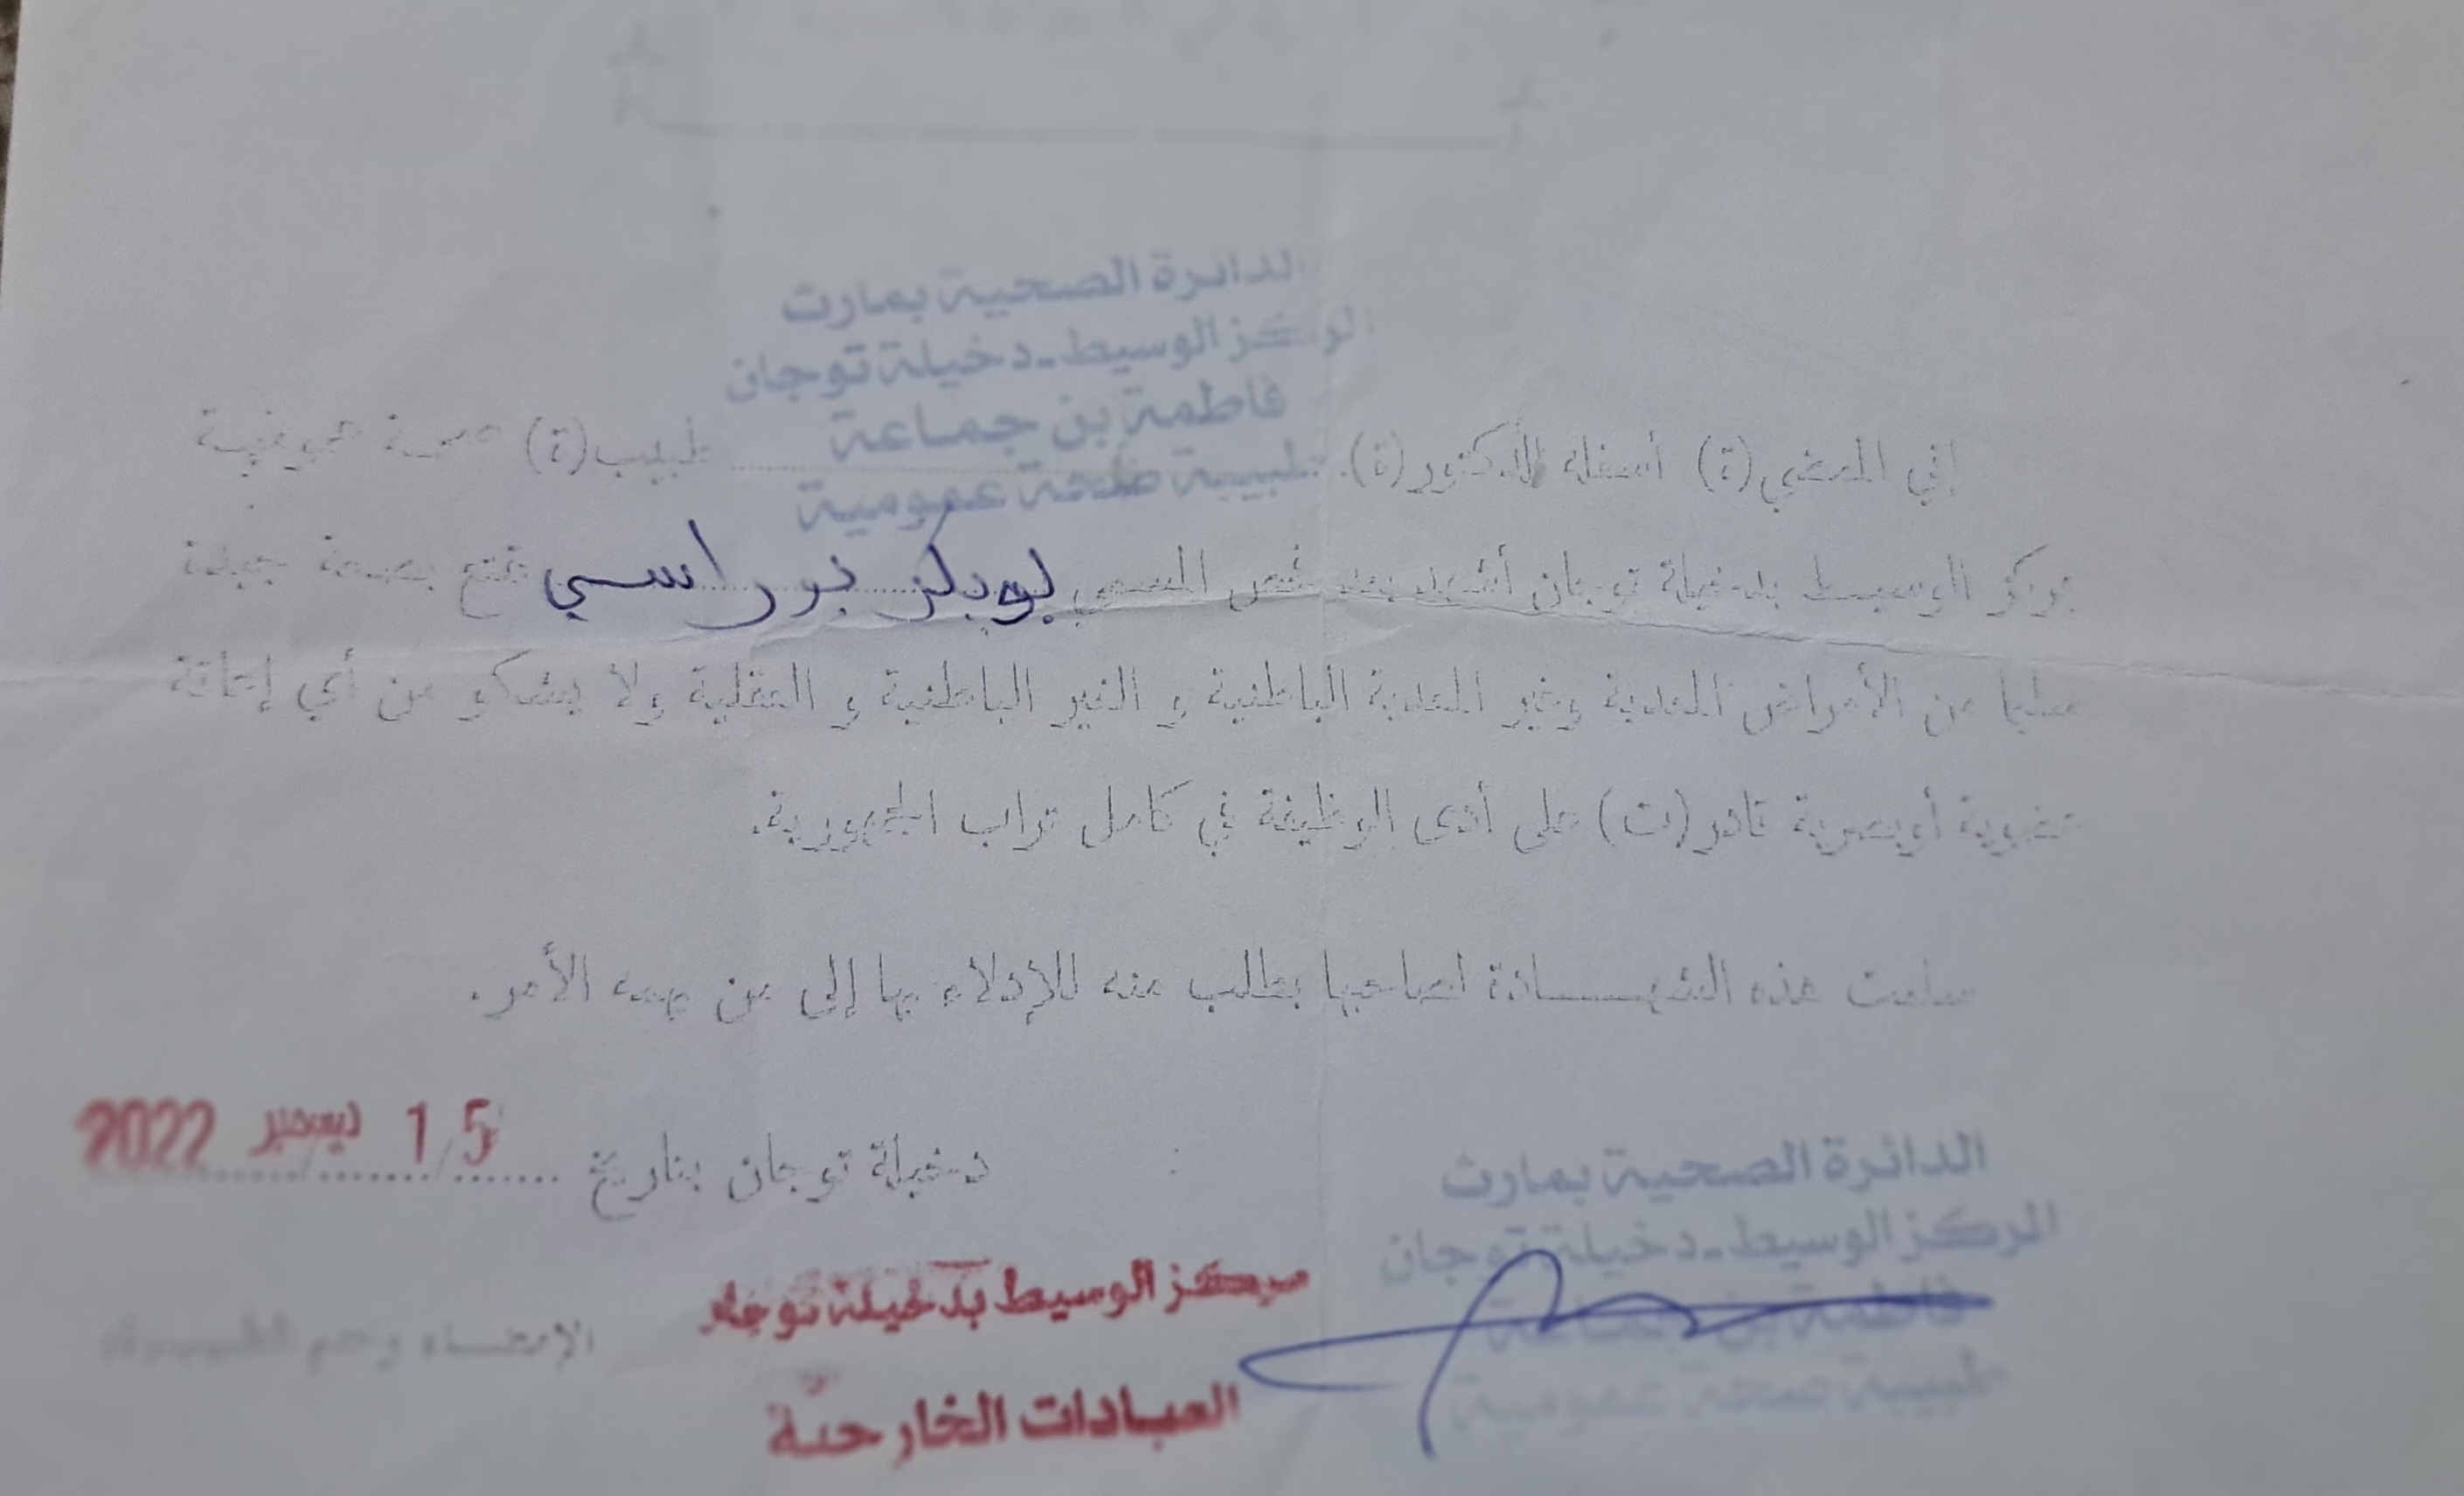 الدائرة الصحية بمارث
المركز الوسيط-دخيلة توجان
فاطمة بن جماعة
طبيبة صحة عمومية
إني الممضي(ة) أسفله الدكتور(ة). طبيب(ة) صحة عمومية
بمركز الوسيط بدخيلة توجان أشهد بعد فحص المسمى بوبكر بوراسي تمتع بصحة جيدة
سليما من الأمراض المعدية وغير المعدية الباطنية و الغير الباطنية و العقلية ولا يشكو من أي إعاقة
عضوية أوبصرية قادر(ت) على أدى الوظيفة في كامل تراب الجمهورية.
سلمت هذه الشهـــــادة لصاحبها بطلب منه للإدلاء بها إلى من يهمه الأمر.
دخيلة توجان بتاريخ 15 ديسمبر 2022
الدائرة الصحية بمارث
المركز الوسيط-دخيلة توجان
فاطمة بن جماعة
طبيبة صحة عمومية
مركز الوسيط بدخيلة توجان
العيادات الخارجية
الإمضاء وختم الطبيب(ة)